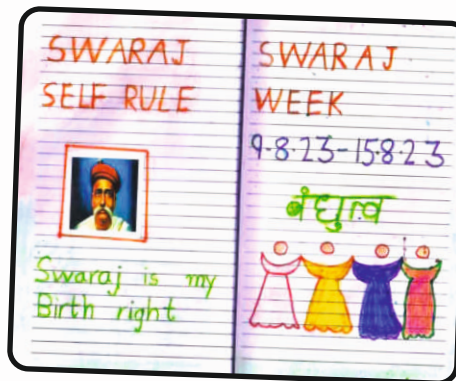 SWARAJ
SELF RULE
Swaraj is my
Birth right
SWARAJ
WEEK
9-8-23-15-8-23
बंधुत्व